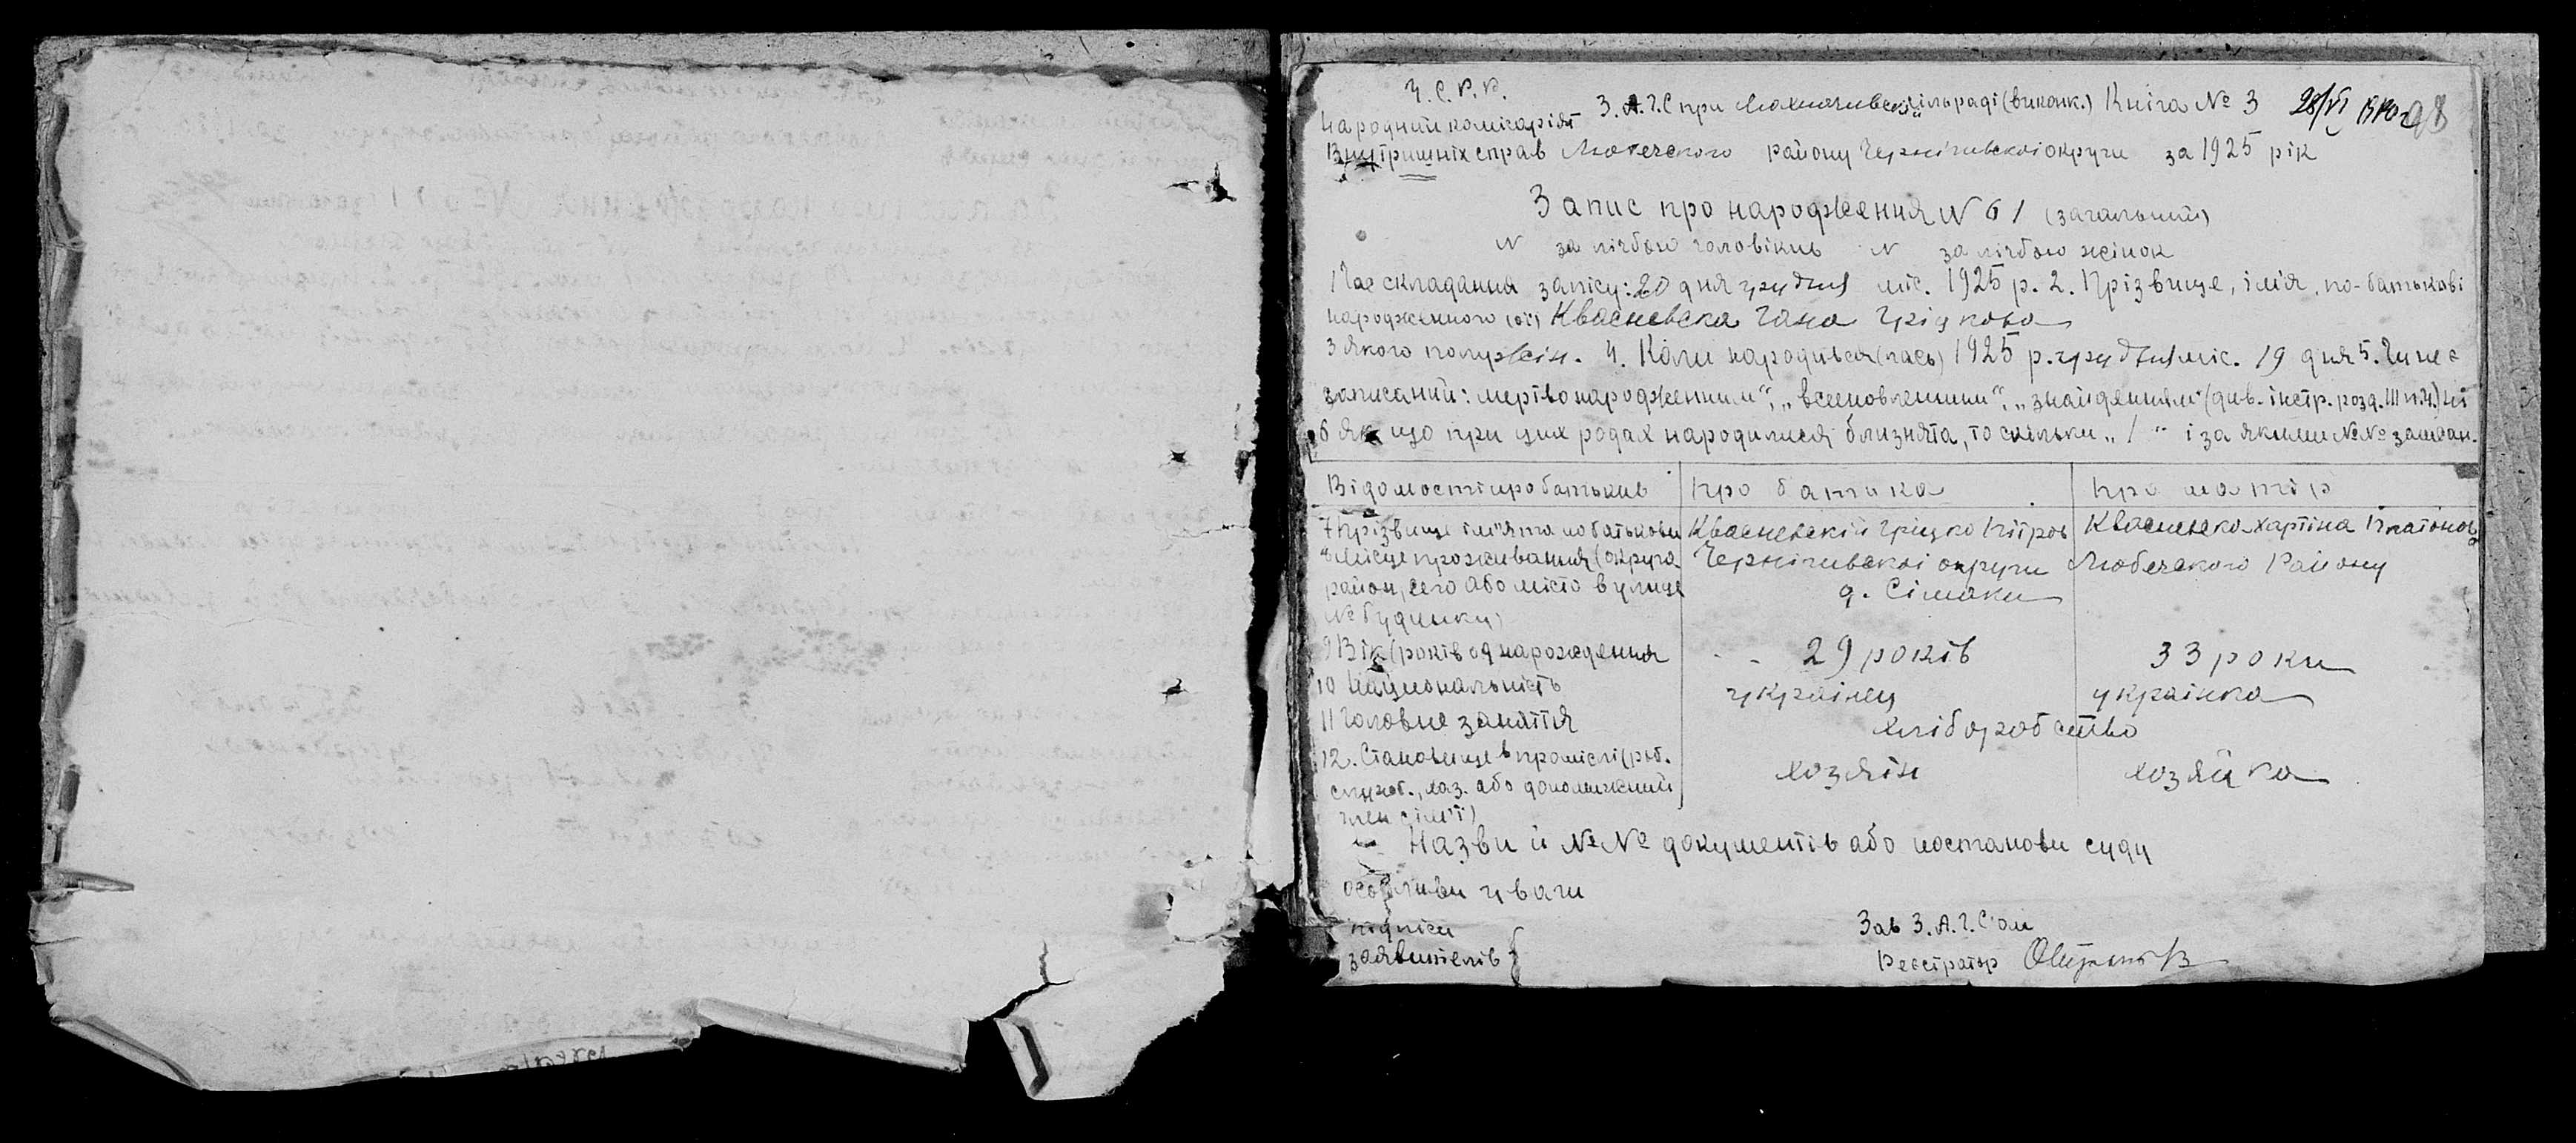 У. С. Р. Р.
Народний комісаріят З. А. Г. С при сільраді (виконк.) Кніга № 3 28/VI 98
Внутрішніх справ Любечского району Чернігивскоі округи за 1925 рік
Запис про народження N 61 (загальний)
N за лічбою чоловіків N за лічбою жінок
1 Час складання запісу: 20 дня грудня міс. 1925 р. 2. Прізвище, імʼя, по-батькові
народженного (оі) Квасневска Гана Гріцкова
3 якого полу жін. 4. Коли народився (лась) 1925 р. грудня міс. 19 дня 5. Чи не є
записаний: мертвонародженним", „всиновленним", „знайденним" (див. інстр. розд. III п.4.) ні
6 Як що при цих родах народилися близнята, то скільки „ 1 " і за якими №№ запісан.
Відомості про батьків про батька про матір
7 Прізвище імʼя та по батькови Квасневский Грицко Пітров Квасневска Хартіна Платонова
8 Місце проживання (округа Чернігивскоі округи Любечского Району
район, село або місто вулиця д. Сімаки
№ будинку)
9 Вік (років од народження - - 29 років 33 роки
10 Національність украінец украінка
11 Головне заняття хліборобство
12. Становище в промислі (роб. хозяін хозяйка
служб., хаз. або допоміжний
член сімʼі)
Назви й №№ документів або постанови суду
особливи уваги
підпіси Зав З. А. Г. С'ом
заявителів { Реєстратор